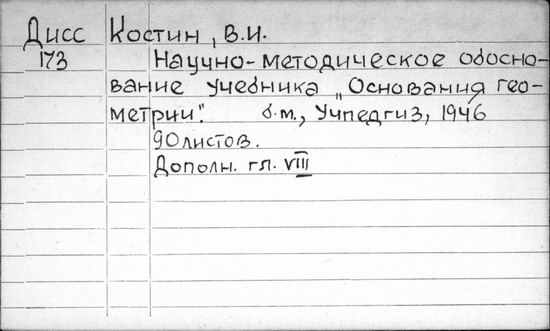 Дисс Костин, В.И.
173 Научно-методическое обосно-
вание учебника „Основания гео-
метрии". б.м., Учпедгиз, 1946
90листов.
Дополн. гл. VIII